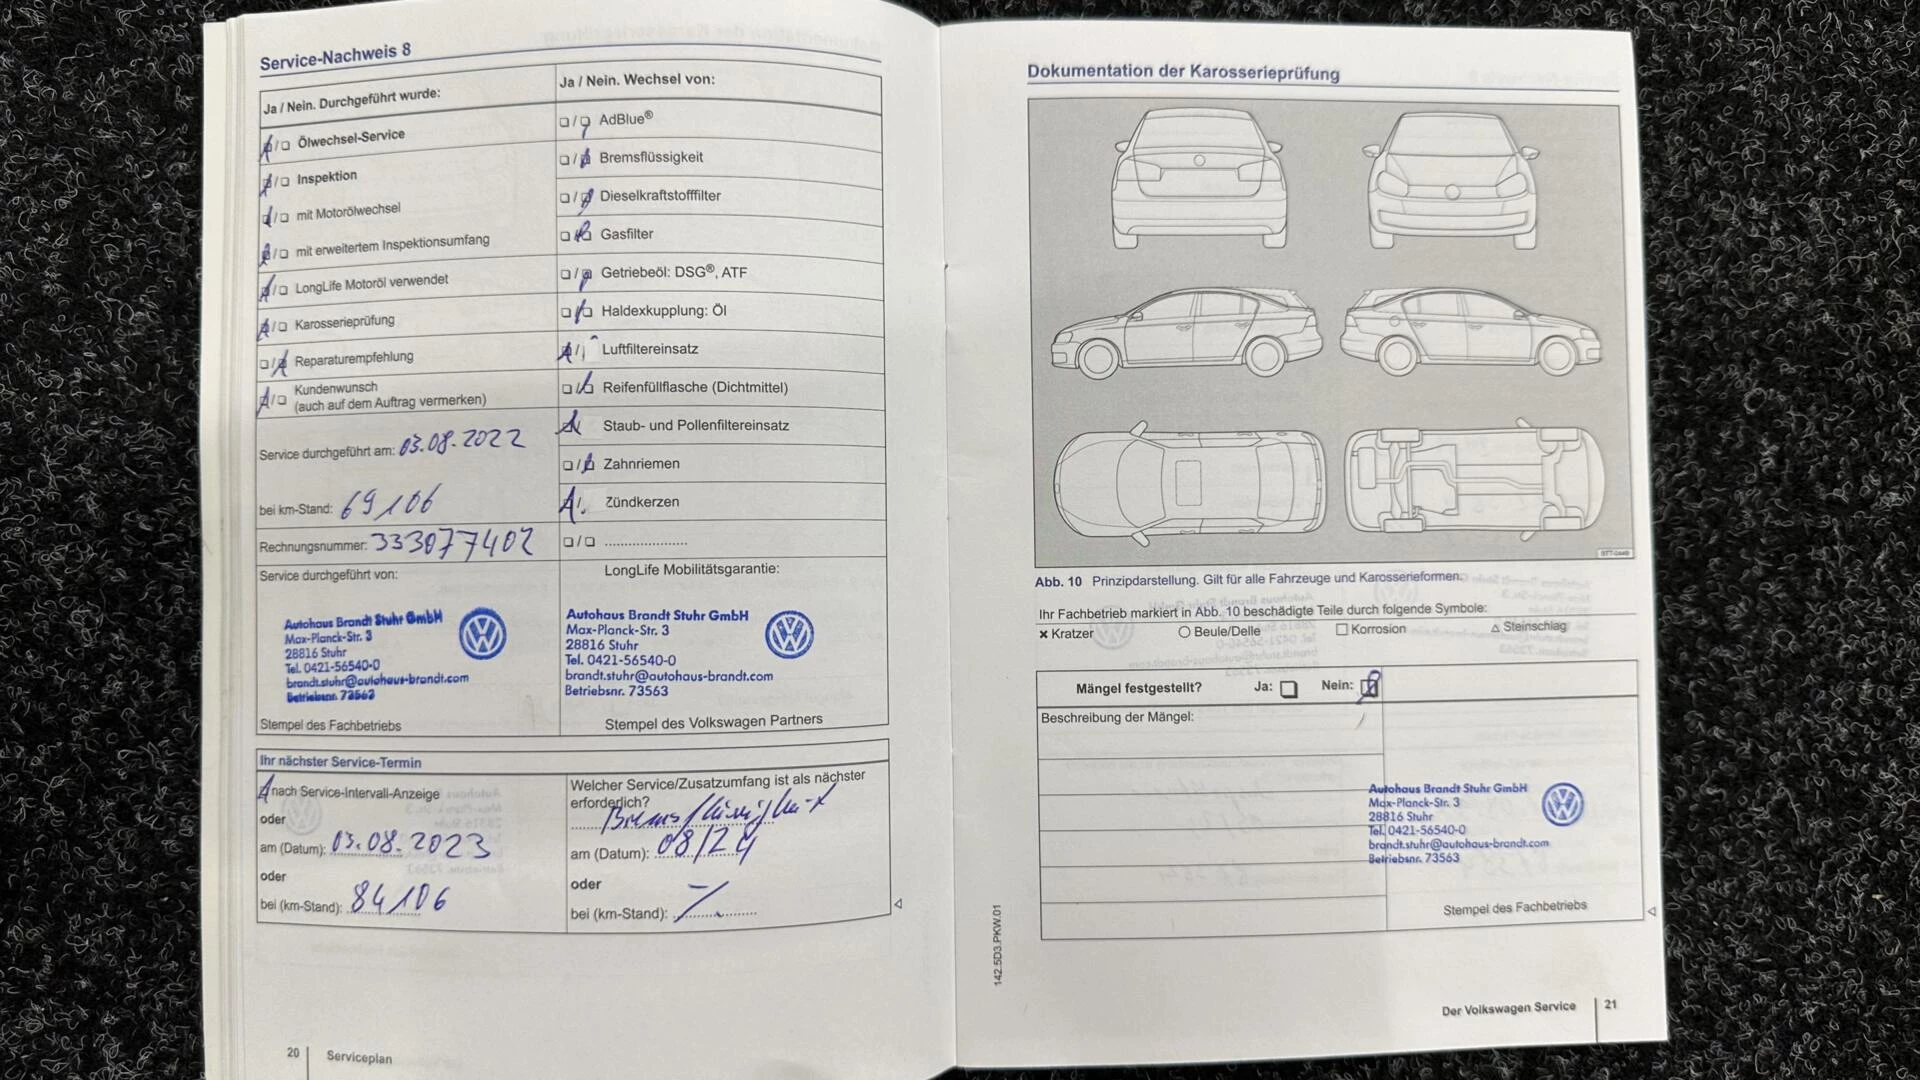 Service-Nachweis 8
Ja / Nein. Durchgeführt wurde:
Ölwechsel-Service
Inspektion
mit Motorölwechsel
mit erweitertem Inspektionsumfang
LongLife Motoröl verwendet
Karosserieprüfung
Reparaturempfehlung
Kundenwunsch
(auch auf dem Auftrag vermerken)
Service durchgeführt am: 03.08.2022
bei km-Stand: 69106
Rechnungsnummer: 333077402
Service durchgeführt von:
Autohaus Brandt Stuhr GmbH
Max-Planck-Str. 3
28816 Stuhr
Tel. 0421-56540-0
brandt.stuhr@autohaus-brandt.com
Betriebsnr. 73563
Stempel des Fachbetriebs
Ja / Nein. Wechsel von:
AdBlue®
Bremsflüssigkeit
Dieselkraftstofffilter
Gasfilter
Getriebeöl: DSG®, ATF
Haldexkupplung: Öl
Luftfiltereinsatz
Reifenfüllflasche (Dichtmittel)
Staub- und Pollenfiltereinsatz
Zahnriemen
Zündkerzen
LongLife Mobilitätsgarantie:
Autohaus Brandt Stuhr GmbH
Max-Planck-Str. 3
28816 Stuhr
Tel. 0421-56540-0
brandt.stuhr@autohaus-brandt.com
Betriebsnr. 73563
Stempel des Volkswagen Partners
Ihr nächster Service-Termin
nach Service-Intervall-Anzeige
oder
am (Datum): 03.08.2023
oder
bei (km-Stand): 84106
Welcher Service/Zusatzumfang ist als nächster
erforderlich?
Bremsflüssigkeit
am (Datum): 08/24
oder
bei (km-Stand):
20 Serviceplan
Dokumentation der Karosserieprüfung
Abb. 10 Prinzipdarstellung. Gilt für alle Fahrzeuge und Karosserieformen.
Ihr Fachbetrieb markiert in Abb. 10 beschädigte Teile durch folgende Symbole:
Kratzer Beule/Delle Korrosion Steinschlag
Mängel festgestellt? Ja: Nein:
Beschreibung der Mängel:
Autohaus Brandt Stuhr GmbH
Max-Planck-Str. 3
28816 Stuhr
Tel. 0421-56540-0
brandt.stuhr@autohaus-brandt.com
Betriebsnr. 73563
Stempel des Fachbetriebs
142.5D3.PKW.01
Der Volkswagen Service 21